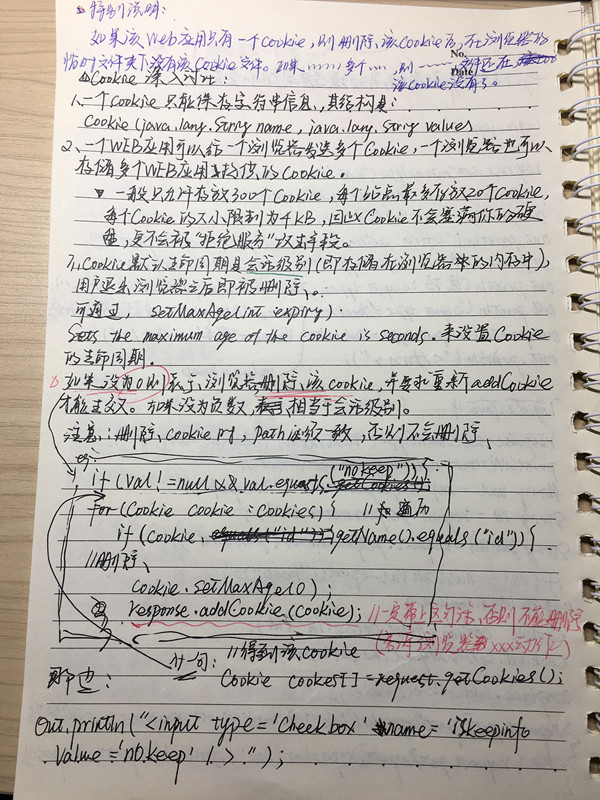 特别说明:
如果该Web应用只有一个cookie,则删除该cookie后,在浏览器的
临时文件夹下没有该Cookie文件。如果……多个…,则——文件还在,
No.
Date
该cookie没有了。
Cookie深入讨论:
1、一个Cookie只能保存字符串信息,其结构是:
Cookie(java.lang.String name, java.lang.String values
2、一个WEB应用可以给一个浏览器发送多个Cookie,一个浏览器也可以
存储多个WEB应用提供的Cookie。
一般只允许存放300个Cookie,每个站点最多存放20个Cookie,
每个Cookie的大小限制为4KB,因此Cookie不会塞满你的硬
盘,更不会被"拒绝服务"攻击手段。
Cookie默认生命周期是会话级别(即存储在浏览器的内存中),
用户退出浏览器之后即被删除。
可通过, setMaxAge(int expiry).
Sets the maximum age of the cookie is seconds. 来设置Cookie
的生命周期.
如果设为0则表示浏览器删除该cookie,并要求重新addCookie
才能生效。如果设为负数,相当于会话级别。
注意:删除cookie时,path必须一致,否则不会删除
eg:
if (val!=null && val.equals("nokeep")){
for (Cookie cookie :cookies) { //遍历
if (cookie.getName().equals("id")){
//删除
cookie.setMaxAge(0);
response.addCookie(cookie); //一定带上这句话,否则不能删除
(告诉浏览器xxx动作)
什一句: //得到该cookie
Cookie cookes[]=request.getCookies();
out.println("<input type='Checkbox' name='iskeepinfo
value='nokeep' />.");